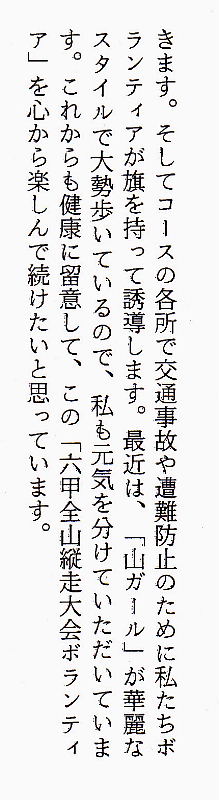 きます。そしてコースの各所で交通事故や遭難防止のために私たちボ
ランティアが旗を持って誘導します。最近は、「山ガール」が華麗な
スタイルで大勢歩いているので、私も元気を分けていただいていま
す。これからも健康に留意して、この「六甲全山縦走大会ボランティ
ア」を心から楽しんで続けたいと思っています。